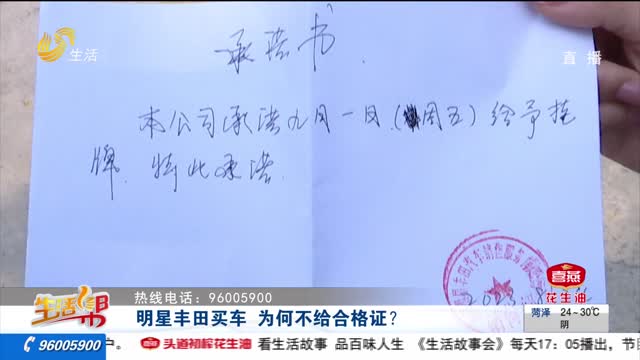 生活
直播
承诺书
本公司承诺九月一日(周五)给予挂
牌.特此承诺.
生活帮
热线电话：96005900
明星丰田买车 为何不给合格证？
喜燕
花生油
菏泽 24~30℃
阴
96005900
户。 喜燕 头道初榨花生油 看生活故事 品百味人生 《生活故事会》每天17：05播出，节